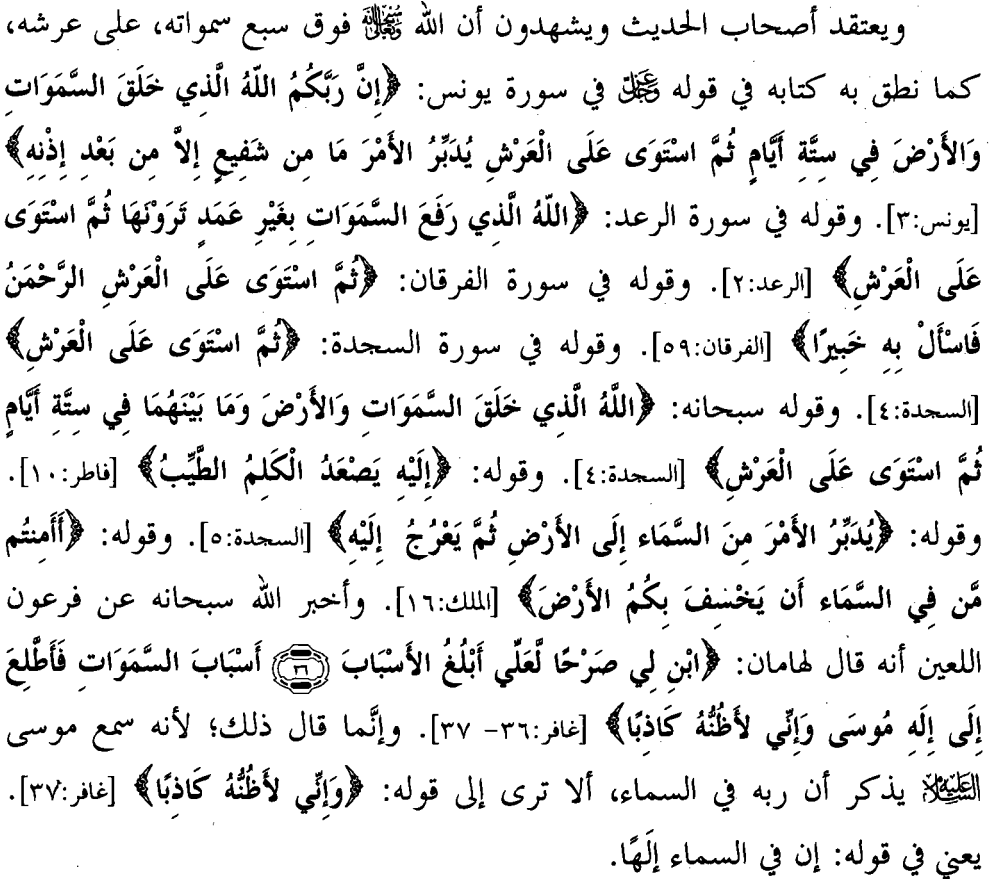 ويعتقد أصحاب الحديث ويشهدون أن الله سبحانه وتعالى فوق سبع سمواته، على عرشه،
كما نطق به كتابه في قوله عز وجل في سورة يونس: ﴿إِنَّ رَبَّكُمُ اللّهُ الَّذِي خَلَقَ السَّمَوَاتِ
وَالأَرْضَ فِي سِتَّةِ أَيَّامٍ ثُمَّ اسْتَوَى عَلَى الْعَرْشِ يُدَبِّرُ الأَمْرَ مَا مِن شَفِيعٍ إِلاَّ مِن بَعْدِ إِذْنِهِ﴾
[يونس:٣]. وقوله في سورة الرعد: ﴿اللّهُ الَّذِي رَفَعَ السَّمَوَاتِ بِغَيْرِ عَمَدٍ تَرَوْنَهَا ثُمَّ اسْتَوَى
عَلَى الْعَرْشِ﴾ [الرعد:٢]. وقوله في سورة الفرقان: ﴿ثُمَّ اسْتَوَى عَلَى الْعَرْشِ الرَّحْمَنُ
فَاسْأَلْ بِهِ خَبِيرًا﴾ [الفرقان:٥٩]. وقوله في سورة السجدة: ﴿ثُمَّ اسْتَوَى عَلَى الْعَرْشِ﴾
[السجدة:٤]. وقوله سبحانه: ﴿اللَّهُ الَّذِي خَلَقَ السَّمَوَاتِ وَالأَرْضَ وَمَا بَيْنَهُمَا فِي سِتَّةِ أَيَّامٍ
ثُمَّ اسْتَوَى عَلَى الْعَرْشِ﴾ [السجدة:٤]. وقوله: ﴿إِلَيْهِ يَصْعَدُ الْكَلِمُ الطَّيِّبُ﴾ [فاطر:١٠].
وقوله: ﴿يُدَبِّرُ الأَمْرَ مِنَ السَّمَاءِ إِلَى الأَرْضِ ثُمَّ يَعْرُجُ إِلَيْهِ﴾ [السجدة:٥]. وقوله: ﴿أَأَمِنتُم
مَّن فِي السَّمَاءِ أَن يَخْسِفَ بِكُمُ الأَرْضَ﴾ [الملك:١٦]. وأخبر الله سبحانه عن فرعون
اللعين أنه قال لهامان: ﴿ابْنِ لِي صَرْحًا لَّعَلِّي أَبْلُغُ الأَسْبَابَ ٣٦ أَسْبَابَ السَّمَوَاتِ فَأَطَّلِعَ
إِلَى إِلَهِ مُوسَى وَإِنِّي لأَظُنُّهُ كَاذِبًا﴾ [غافر:٣٦- ٣٧]. وإنَّما قال ذلك؛ لأنه سمع موسى
عليه السلام يذكر أن ربه في السماء، ألا ترى إلى قوله: ﴿وَإِنِّي لأَظُنُّهُ كَاذِبًا﴾ [غافر:٣٧].
يعني في قوله: إن في السماء إلَهًا.